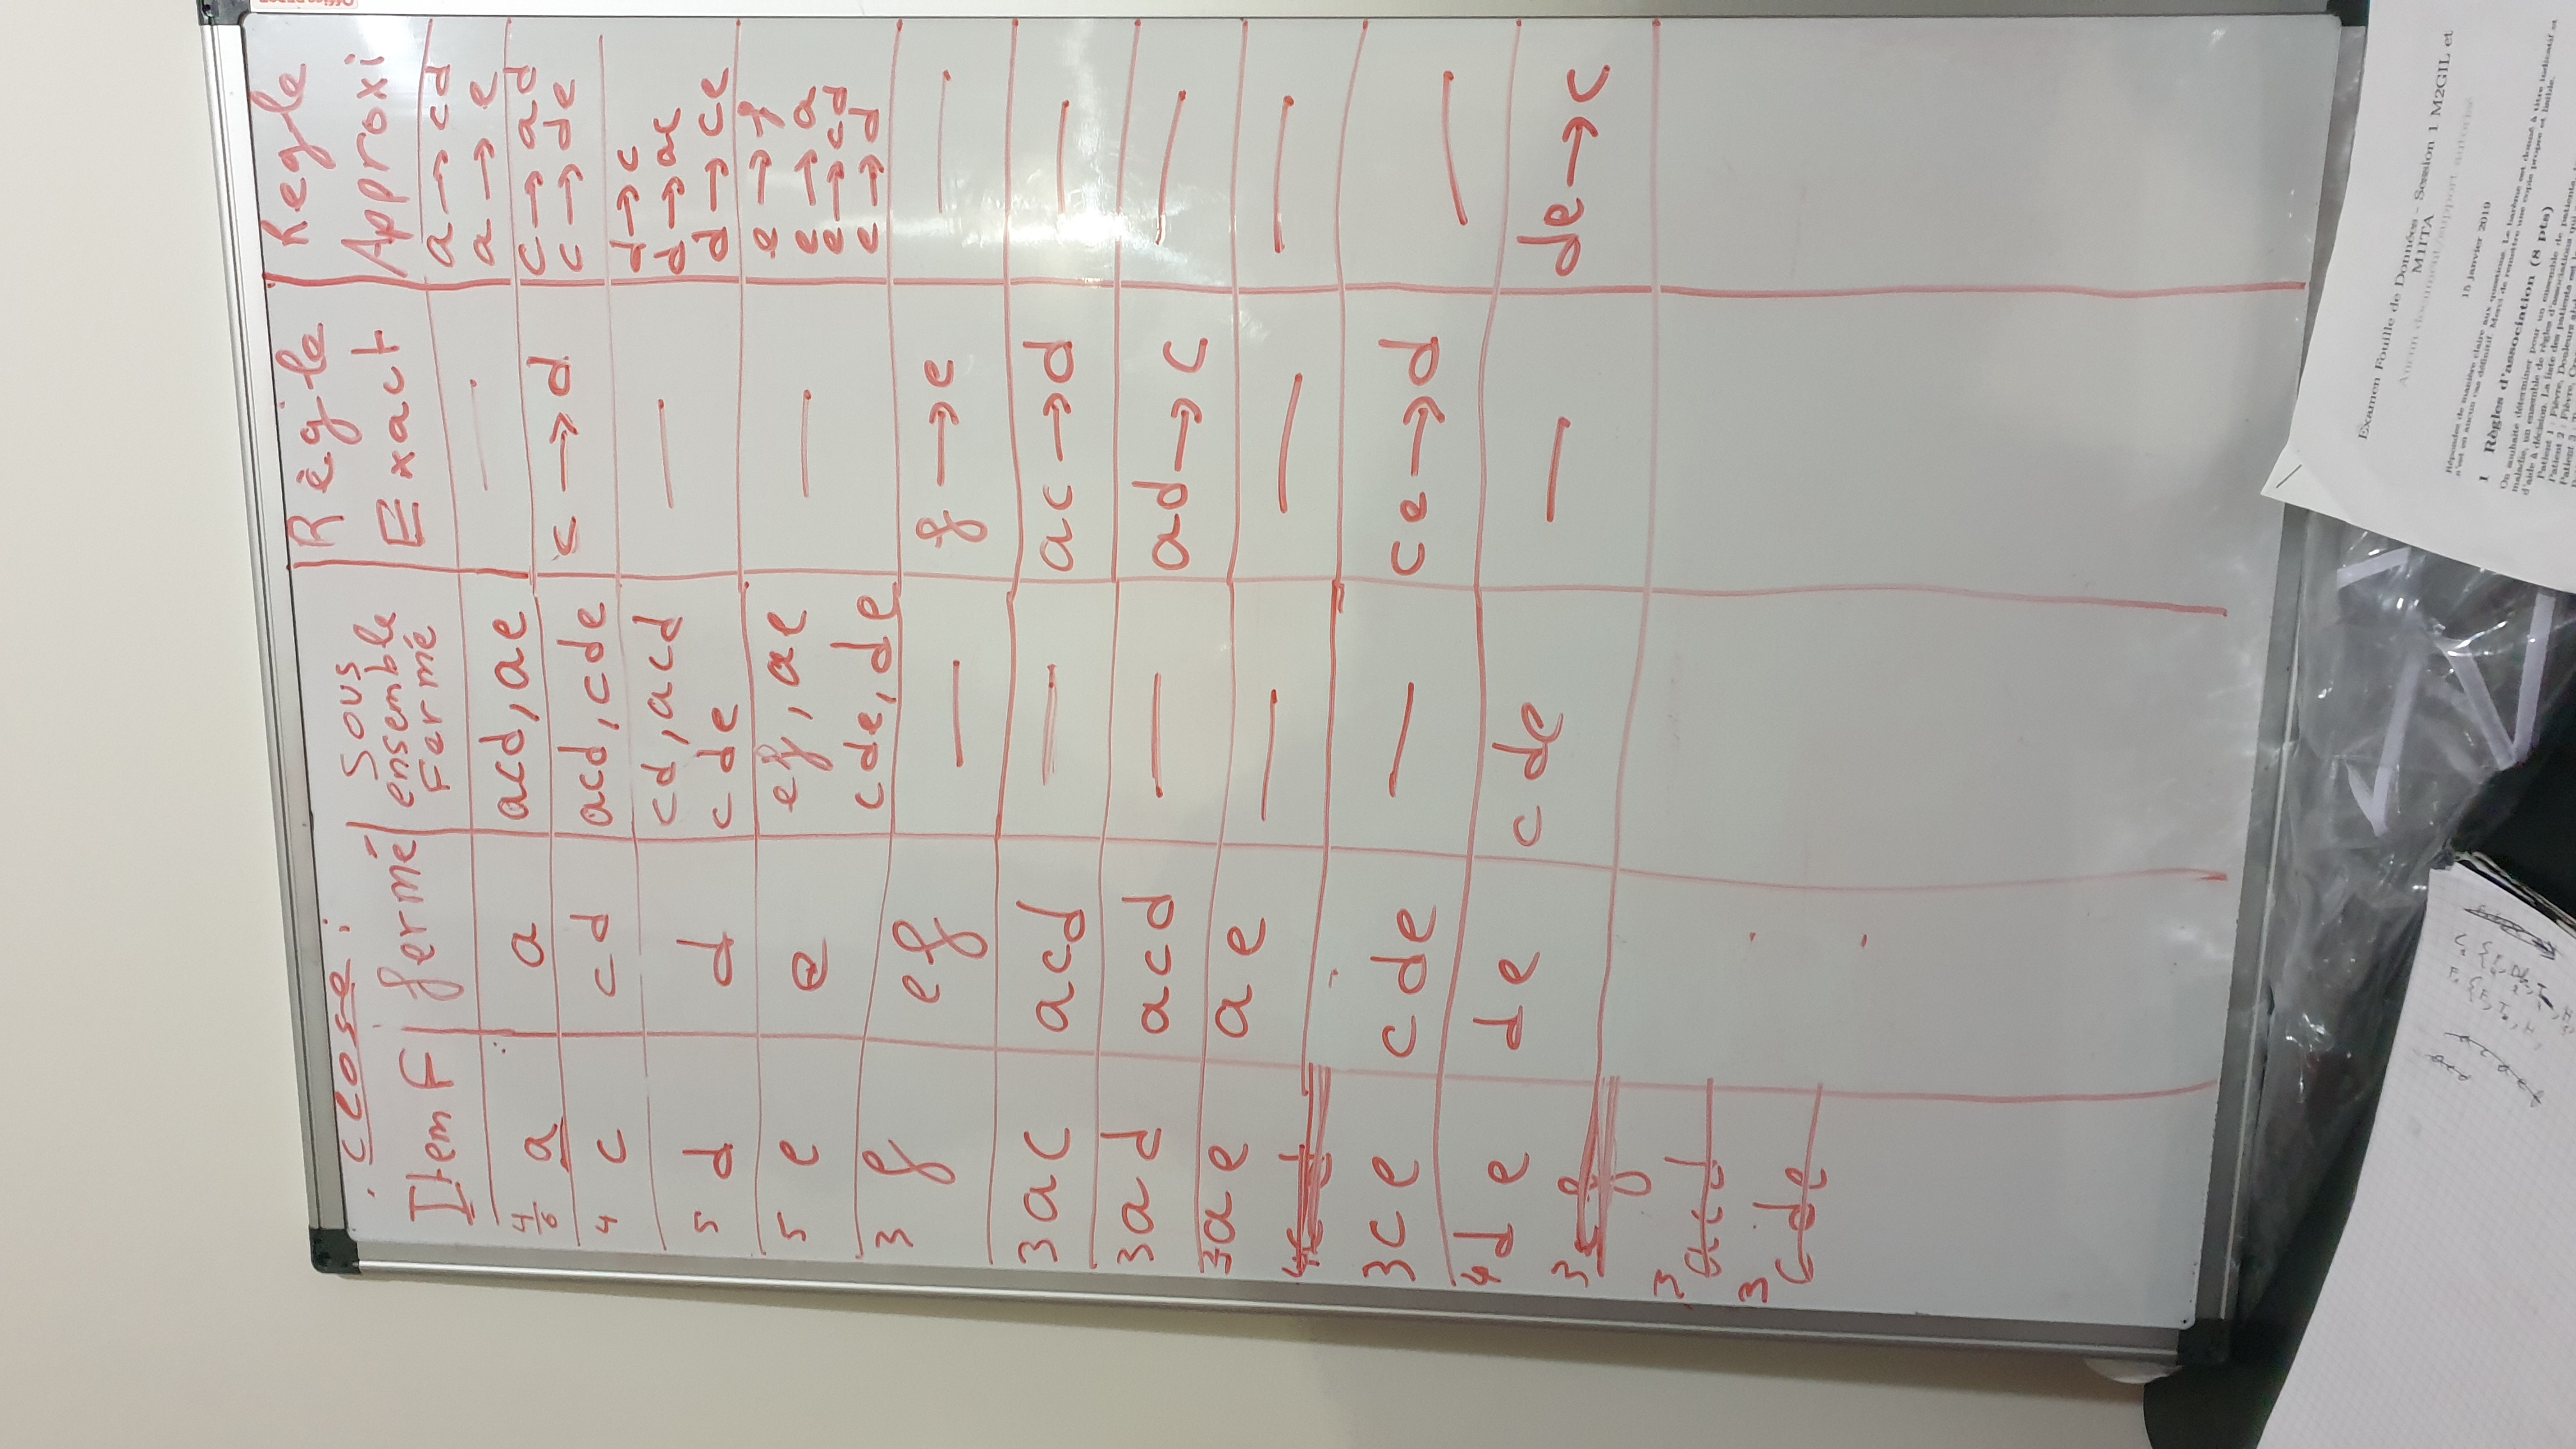 . close :
Item F | fermé | sous ensemble Fermé | Règle Exact | Regle Approxi
4/6 a | a | acd, ae | — | a → cd
a → e
4 c | cd | acd, cde | c → d | c → ad
c → de
5 d | d | cd, acd | — | d → c
cde | d → ac
d → ce
5 e | e | ef, ae | — | e → f
cde, de | e → a
e → cd
e → d
3 f | ef | — | f → e | —
3 ac | acd | — | ac → d | —
3 ad | acd | — | ad → c | —
3 ae | ae | — | — | —
3 ce | cde | — | ce → d | —
4 de | de | cde | — | de → c
3
3 acd
3 cde
Examen Fouille de Données - Session 1 M2GIL et
M1ITA
Aucun document/support autorisé
15 janvier 2019
Répondes de manière claire aux questions. Le barème est donné à titre indicatif et
n'est en aucun cas définitif. Merci de remettre une copie propre et lisible.
1 Règles d'association (8 pts)
On souhaite déterminer pour un ensemble de patients
maladie, un ensemble de règles d'associations qui
d'aide à décision. La liste des patients est
Patient 1 : Fièvre, Douleurs
Patient 2 : Fièvre,
Patient 3 :